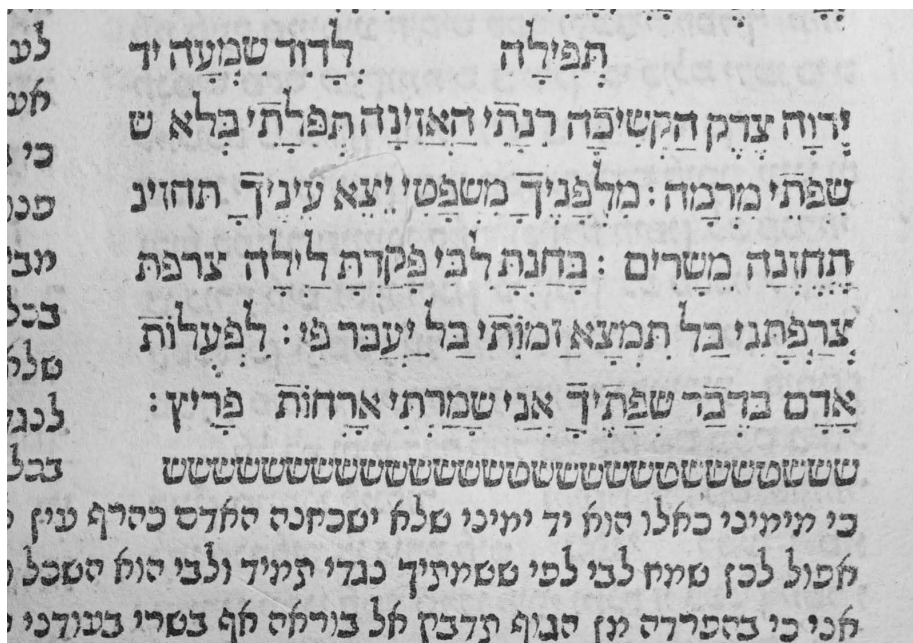 תפילה לדוד שמעה יד
ידוה צדק הקשיבה רנתי האזינה תפלתי בלא ש
שפתי מרמה : מלפניך משפטי יצא עיניך תחזינ
תחזנה משרים : בחנת לבי פקדת לילה צרפת
צרפתני בל תמצא זמותי בל יעבר פי : לפעלות
אדם בדבר שפתיך אני שמרתי ארחות פריץ :
כי מימיני כאלו הוא יד ימיני שלא ישכחנה האדם כהרף עין
אפול לכן שמח לבי לפי ששמתיך נגדי תמיד ולבי הוא השכל
אני כי בהפרדה מן הגוף תדבק אל בוראה אף בשרי בעודני